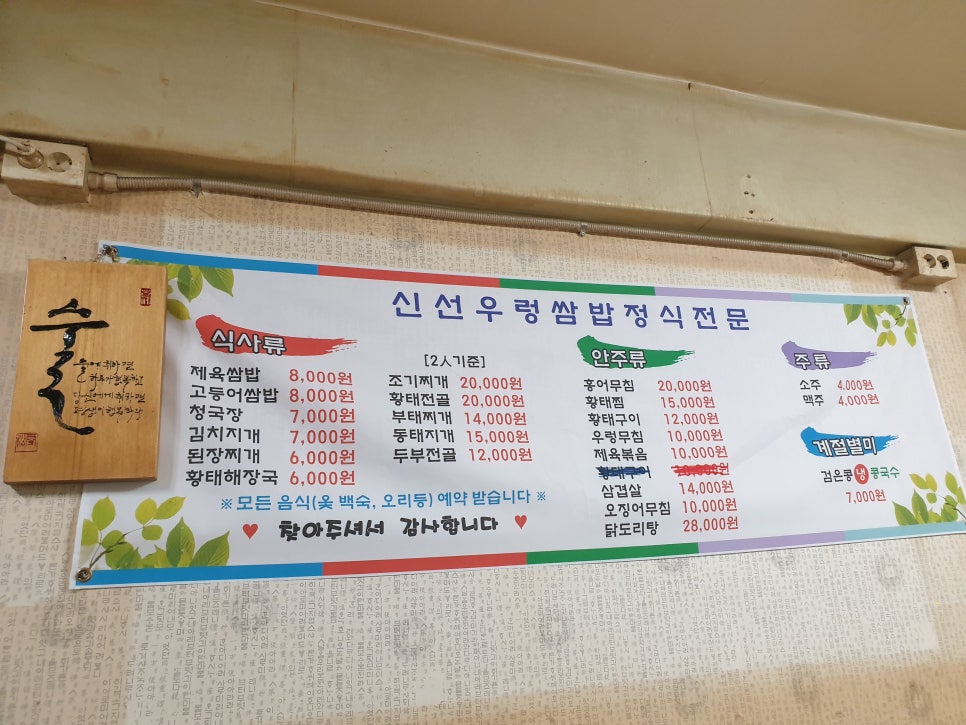 신선우렁쌈밥정식전문
식사류
제육쌈밥 8,000원
고등어쌈밥 8,000원
청국장 7,000원
김치지개 7,000원
된장찌개 6,000원
황태해장국 6,000원
[2人기준]
조기찌개 20,000원
황태전골 20,000원
부태찌개 14,000원
동태지개 15,000원
두부전골 12,000원
※ 모든 음식(옻 백숙, 오리등) 예약 받습니다 ※
♥ 찾아주셔서 감사합니다 ♥
안주류
홍어무침 20,000원
황태찜 15,000원
황태구이 12,000원
우렁무침 10,000원
제육볶음 10,000원
황태구이 10,000원
삼겹살 14,000원
오징어무침 10,000원
닭도리탕 28,000원
주류
소주 4,000원
맥주 4,000원
계절별미
검은콩 냉 콩국수
7,000원
술